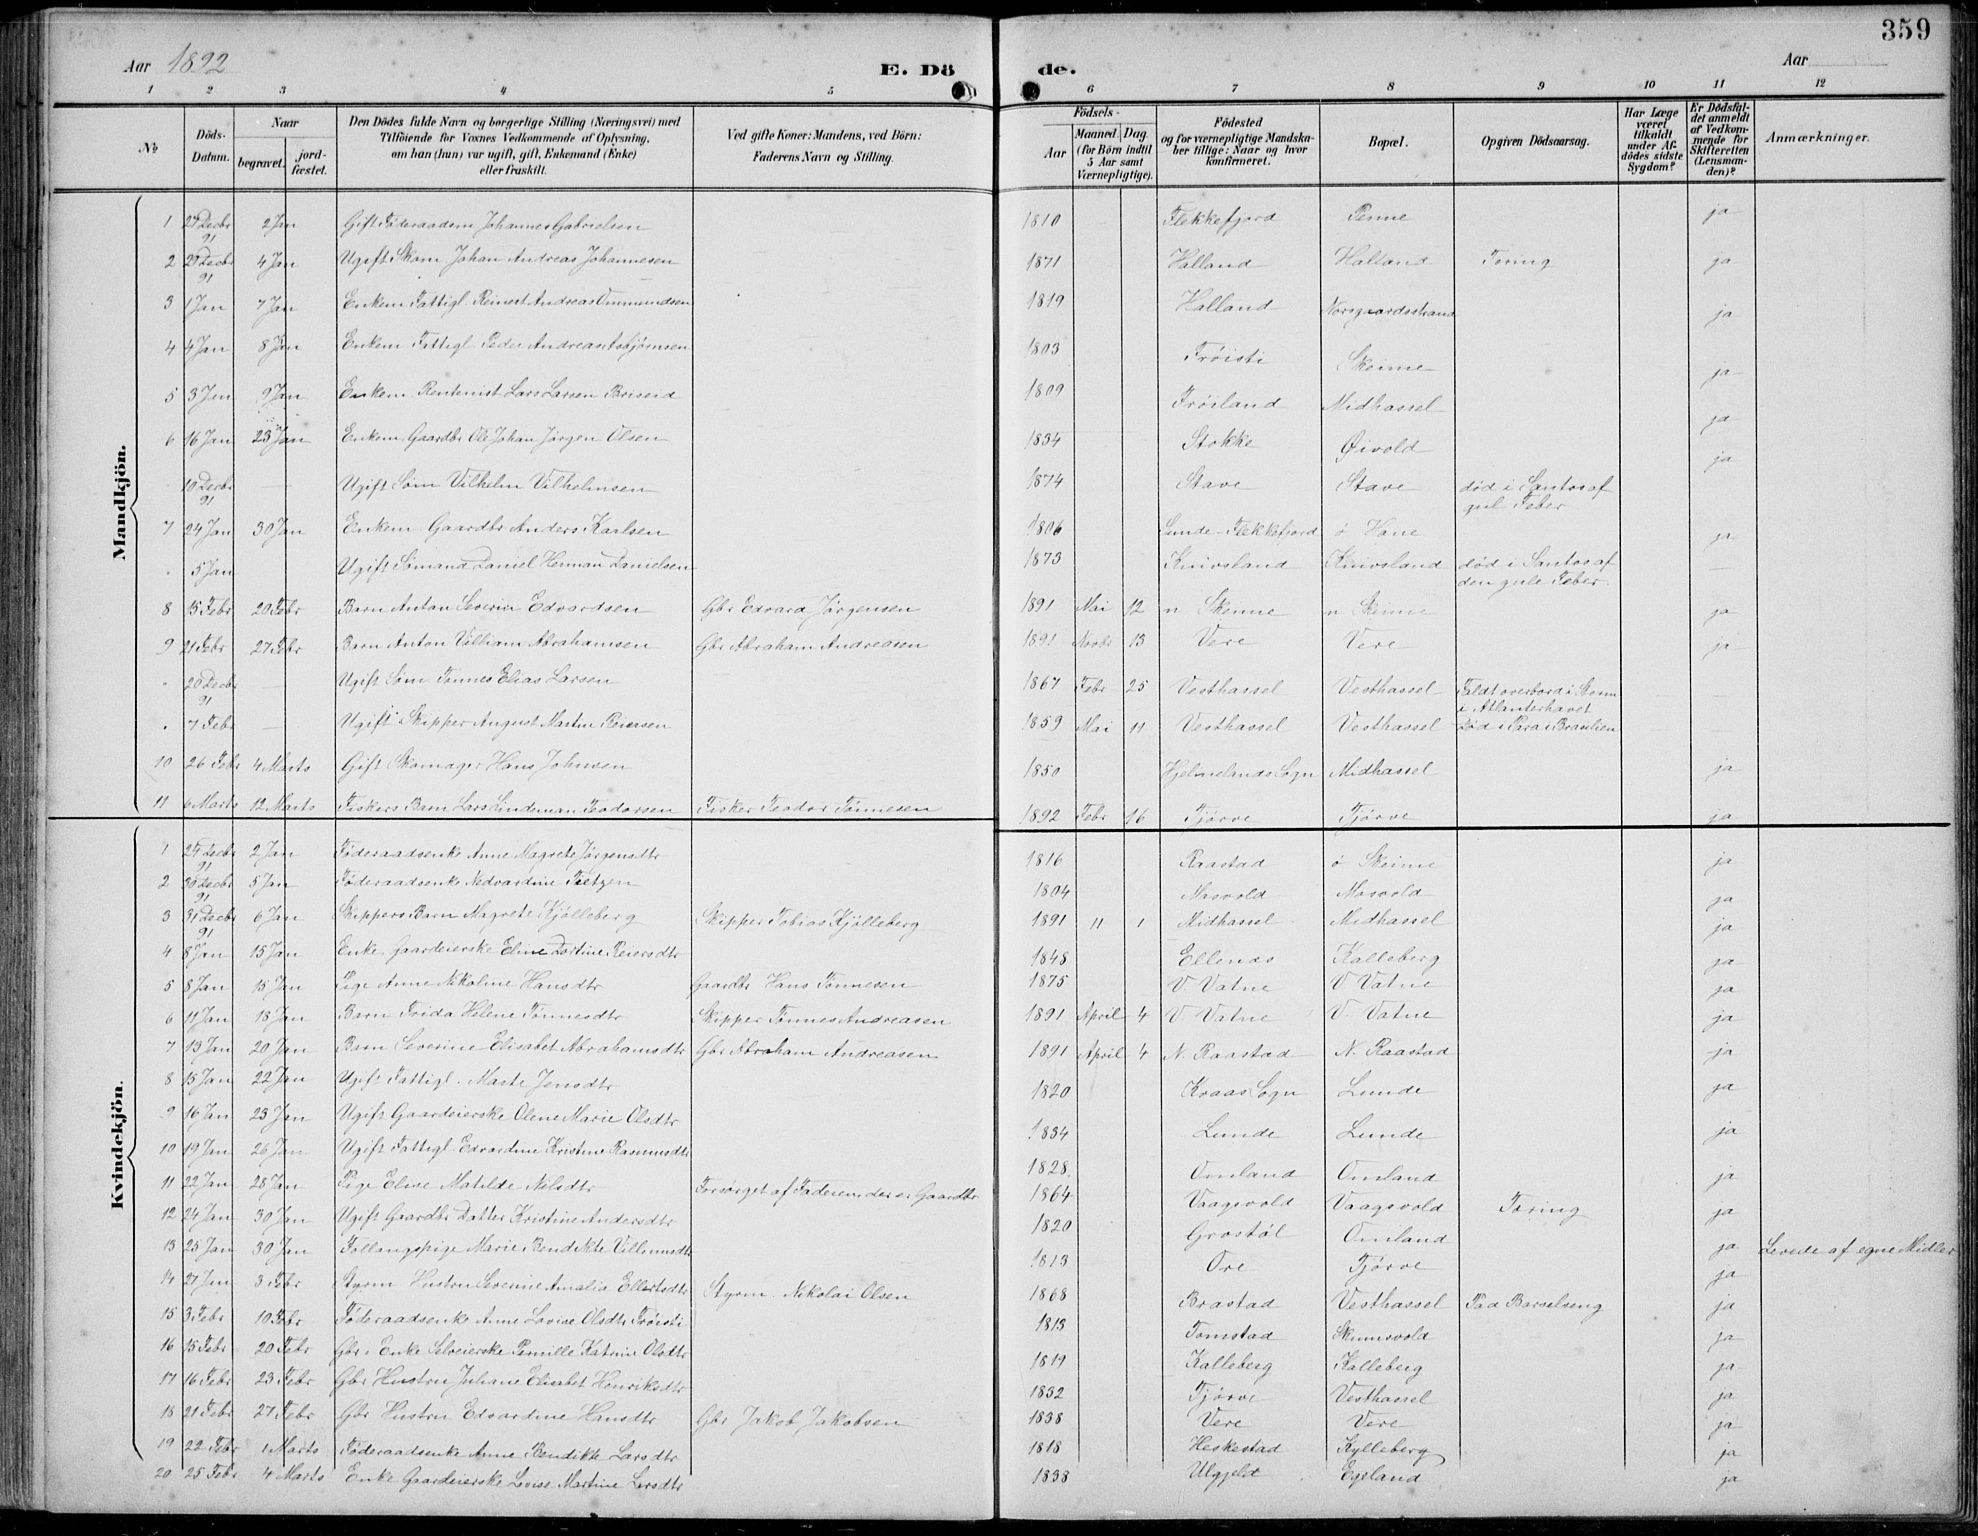 359
Aar 1892
E. Dö de.
Aar
1 2 3 4 5 6 7 8 9 10 11 12
No
Döds-Datum.
Naar
begravet.
jord-fæstet.
Den Dödes fulde Navn og borgerlige Stilling (Næringsvei) med
Tilföiende for Voxnes Vedkommende af Oplysning,
om han (hun) var ugift, gift, Enkemand (Enke)
eller fraskilt.
Ved gifte Koner: Mandens, ved Börn:
Faderens Navn og Stilling.
Födsels-
Aar
Maaned. Dag.
(for Börn indtil
5 Aar samt
Værnepligtige).
Födested
og for værnepligtige Mandska-
ber tillige: Naar og hvor
konfirmeret.
Bopæl.
Opgiven Dödsaarsag.
Har Læge
været
tilkaldt
under Af-
dödes sidste
Sygdom?
Er Dödsfal-
det anmeldt
af Vedkom-
mende for
Skifteretten
(Lensman-
den)?
Anmærkninger.
Mandkjön.
1 Decbr 91 2 Jan Gift Föderaadsm Johannes Gabrielsen 1810 Flekkefjord Penne ja
2 Decbr 91 4 Jan Ugift Skom Johan Andreas Johannesen 1871 Halland Halland Tæring ja
3 1 Jan 7 Jan Enkem Fattigl Reinert Andreas Ommundsen 1819 Halland Norsgaardsstrand ja
4 4 Jan 8 Jan Enkem Fattigl Peder Andreas Asbjörnsen 1803 Fröisti Skeime ja
5 3 Jan 9 Jan Enkem Rentenist Lars Larsen Briseid 1809 Fröiland Midhassel ja
6 16 Jan 23 Jan Enkem Gaardbr Ole Johan Jörgen Olsen 1834 Stokke Öivold ja
10 Decbr 91 — Ugift Söm Vilhelm Vilhelmsen 1874 Stave Stave död i Santos af
gul Feber
7 24 Jan 30 Jan Enkem Gaardbr Anders Karlsen 1806 Lunde - Flekkefjord ö Hane ja
5 Jan Ugift Sömand Daniel Herman Danielsen 1873 Knivsland Knivsland död i Santos af —
den gule Feber.
8 15 Febr 20 Febr Barn Anton Severin Edvardsen Gbr Edvard Jörgensen 1891 Mai 12 n Skeime n Skeime ja
9 21 Febr 27 Febr Barn Anton Villiam Abrahamsen Gbr Abraham Andreasen 1891 Novbr 13 Vere Vere ja
20 Decbr 91 — Ugift Söm Tönnes Elias Larsen 1867 Febr 25 Vesthassel Vesthassel Faldt overbord i Storm
i Atlanterhavet
7 Febr — Ugift Skipper August Martin Reiersen 1859 Mai 11 Vesthassel Vesthassel död i Para i Brasilien
10 26 Febr 4 Marts Gift Skomager Hans Johnsen 1850 Hjelmelands Sogn Midhassel ja
11 6 Marts 12 Marts Fiskers Barn Lars Lindeman Teodorsen Fisker Teodor Tönnesen 1892 Febr 16 Tjörve Tjörve ja
Kvindekjön.
1 Decbr 91 2 Jan Föderaadsenke Anne Magrete Jörgensdtr 1816 Raastad ö Skeime ja
2 30 Decbr 91 5 Jan Föderaadsenke Nedvardine Tietzen 1804 Mosvold Mosvold ja
3 31 Decbr 91 6 Jan Skippers Barn Magrete Kjölleberg Skipper Tobias Kjölleberg 1891 11 1 Midhassel Midhassel ja
4 8 Jan 15 Jan Enke Gaardeierske Eline Dortine Reiersdtr 1848 Ellenes Kalleberg ja
5 8 Jan 15 Jan Pige Anne Nikoline Hansdtr Gaardbr Hans Tönnesen 1875 V. Vatne V Vatne ja
6 11 Jan 18 Jan Barn Frida Helene Tönnesdtr Skipper Tönnes Andreasen 1891 April 4 V. Vatne V. Vatne ja
7 13 Jan 20 Jan Barn Severine Elisabet Abrahamsdtr Gbr Abraham Andreasen 1891 April 4 N. Raastad N. Raastad ja
8 15 Jan 22 Jan Ugift Fattigl. Marte Jensdtr 1820 Kraas Sogn Lunde ja
9 16 Jan 23 Jan Ugift Gaardeierske Olene Marie Olsdtr 1834 Lunde Lunde ja
10 19 Jan 26 Jan Ugift Fattigl Edvardine Kristine Rasmusdtr 1828 Omland Omland ja
11 22 Jan 28 Jan Pige Elise Matilde Nilsdtr Forsörget af Faderen der er Gaardbr 1864 Vaagsvold Vaagsvold Tæring ja
12 24 Jan 30 Jan Ugift Gaardbr Datter Kristine Andersdtr 1820 Grostöl Omland ja
13 25 Jan 30 Jan Föllaugspige Marie Bendikte Villumsdtr 1813 Ore Tjörve ja Levede af egne Midler
14 27 Jan 3 Febr Styrm Hustru Severine Amalia Ellertsdtr Styrm. Nikolai Olsen 1868 Brastad Vesthassel Paa Barselseng ja
15 3 Febr 10 Febr Föderaadsenke Anne Lovise Olsdtr Fröisti 1813 Tomstad Skumsvold ja
16 15 Febr 20 Febr Gbr. Enke Selveierske Pernille Katrine Olsdtr 1819 Kalleberg Kalleberg ja
17 16 Febr 23 Febr Gbr Hustru Juliane Elisabet Henriksdtr 1832 Tjörve Vesthassel ja
18 21 Febr 27 Febr Gbr Hustru Edvardine Hansdtr Gbr Jakob Jakobsen 1838 Vere Vere ja
19 22 Febr 1 Marts Föderaadsenke Anne Bendikte Larsdtr 1818 Heskestad Kylleberg ja
20 25 Febr 4 Marts Enke Gaardeierske Lovise Martine Larsdtr 1838 Ulgjeld Egeland ja